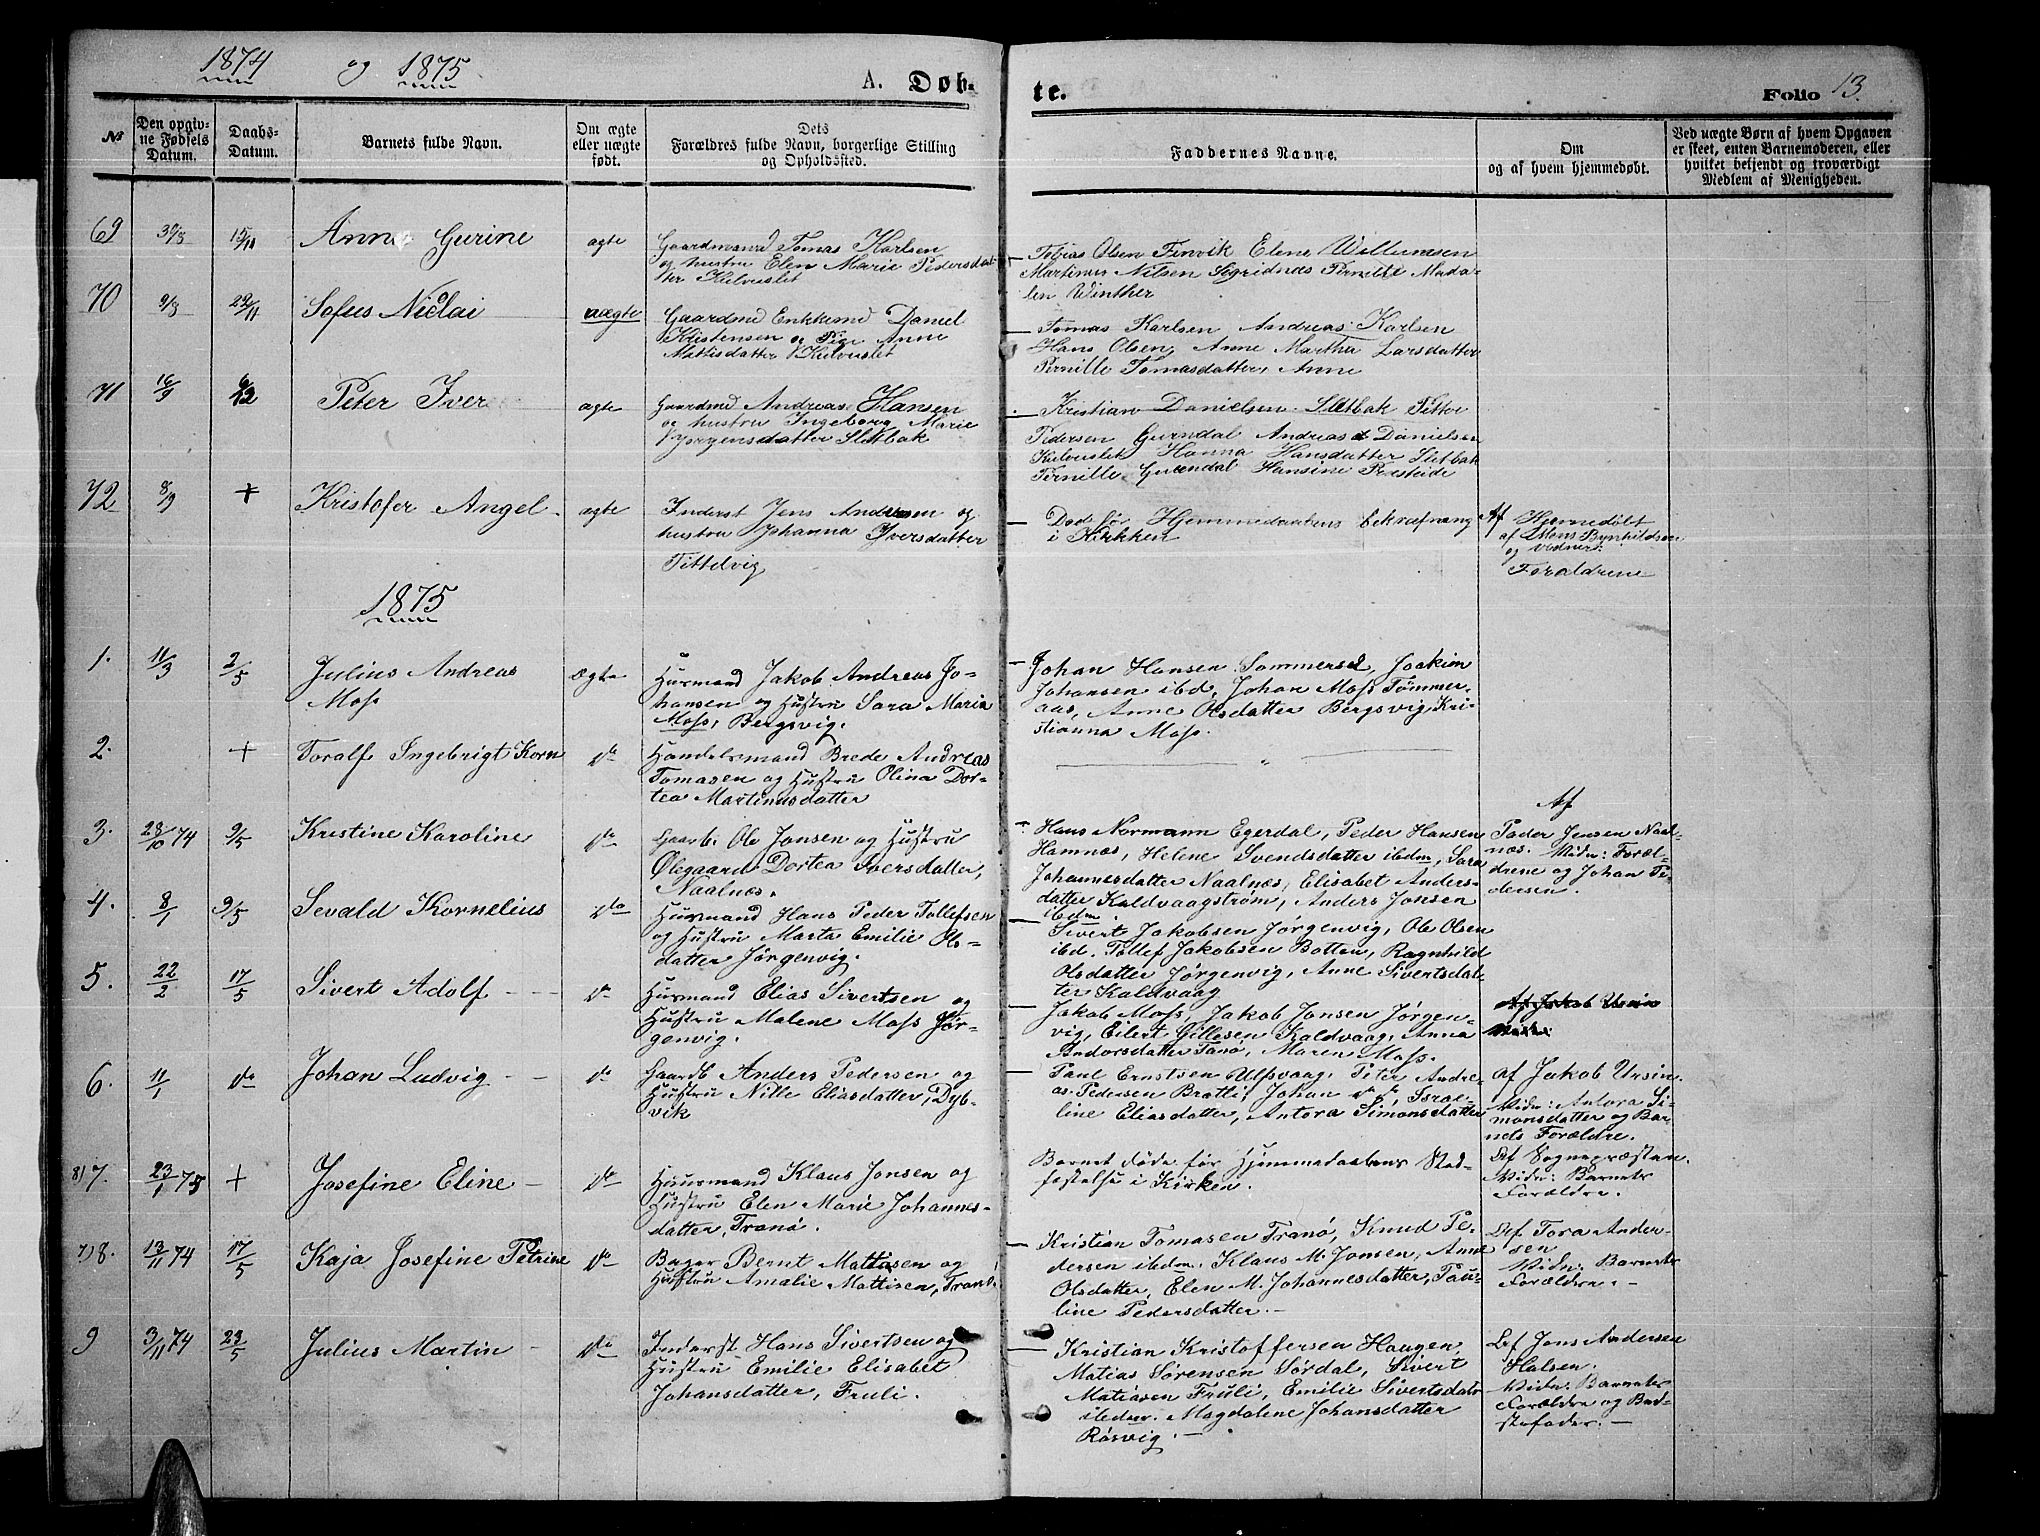 1874 og 1875
A. Døb-
te.
Folio 13.
No
Den opgiv-
ne Fødsels
Datum.
Daabs-
Datum.
Barnets fulde Navn.
Om ægte
eller uægte
født.
Dets
Forældres fulde Navn, borgerlige Stilling
og Opholdssted.
Faddernes Navne.
Om
og af hvem hjemmedøbt.
Ved uægte Børn af hvem Opgaven
er skeet, enten Barnemoderen, eller
hvilket bekjendt og troværdigt
Medlem af Menigheden.
69 30/8 15/11 Anne Gurine ægte
Gaardmand Tomas Karlsen
og hustru Elen Marie Pedersdat
ter Kulveslet
Tobias Olsen Finvik Elene Willumsen
Martinus Nilsen Sigridnæs Pernille Mada-
len Winther
70 9/8 22/11 Sofus Nicolai uægte
Gaardmd Enkkemd Daniel
Kristensen og Pige Anne
Mattisdatter Kulveslet
Tomas Karlsen Andreas Karlsen
Hans Olsen, Anne Martha Larsdatter
Pernille Tomasdatter, Anne
71 16/9 6/12 Peter Iver ægte
Gaardmd Andreas Hansen
og hustru Ingeborg Marie
Jørgensdatter Sletbak
Kristian Danielsen Sletbak Petter
Pedersen Gurndal Andreas Danielsen
Kulveslet Hanna Hansdatter Sletbak
Pernille Hansine Presteide
72 8/9 + Kristofer Angel ægte
Inderst Jens Andersen og
hustru Johanna Iversdatter
Tittelvig
Død før Hjemmedaabens bekræfnang
i Kirkken
Af Hjemedøbt
af Mons Bynhildsen
og vidner:
Foraldrene
1875
1. 11/3 2/5 Julius Andreas
Moss
Ægte
Husmand Jakob Andreas Jo-
hansen og Hustru Sara Maria
Moss, Bergsvig.
Johan Hansen Sommersel, Joakim
Johansen ibd, Johan Moss Tømmer-
aas, Anne Olsdatter Bergsvig, Kri-
stianna Moss.
2. + Toralf Ingebrigt Korn do
Handelsmand Brede Andreas
Tomasen og Hustru Olina Dor-
tea Martinusdatter
"
3. 28/10 74 9/5 Kristine Karoline do
Gaarb. Ole Jonsen og Hustru
Olegaard Dortea Iversdatter,
Naalnes.
Hans Normann Egerdal, Peder Hansen
Hamnæs, Helene Svendsdatter ibdm, Sara
Johannesdatter Naalnæs, Elisabet Anders-
datter Kaldvaagstrøm, Anders Jonsen
ibdm.
Af
Peder Jensen Naal-
næs. Vidn: Foræl-
drene og Johan Pe-
dersen.
4. 8/1 9/5 Sevald Kornelius do
Husmand Hans Peder Tollefsen
og Hustru Marta Emilie Ols-
datter Jørgenvig.
Sivert Jakobsen Jørgenvig, Ole Olsen
ibd. Tollef Jakobsen Botten, Ragnhild
Olsdatter Jørgenvig, Anne Sivertsdat-
ter Kaldvaag
5. 22/2 17/5 Sivert Adolf do
Husmand Elias Sivertsen og
Hustru Malene Moss Jør-
genvig.
Jakob Moss, Jakob Jonsen Jørgen-
vig, Eilert Gillesen Kaldvaag, Anna
Andorsdatter Tanø, Maren Moss.
Af Jakob Ursin
6. 11/1 do Johan Ludvig do
Gaardb Anders Pedersen og
Hustru Nille Eliasdatter, Dyb-
vik
Paul Ernstsen Ulfsvaag, Peter Andre-
as Pedersen Bratli, Johan do do, Israe-
line Eliasdatter, Antora Simonsdatter
af Jakob Ursin.
Vidn: Antora Si-
monsdatter og Bar-
nets Forældre.
8) 7. 23/1 75 + Josefine Eline do
Husmand Klaus Jonsen og
Hustru Elen Marie Johannes-
datter, Tranø.
Barnet døde før Hjemmedaabens Stad-
festelse i Kirken.
Af Sognepræsten.
Vidn: Barnets
Forældre.
7) 8. 13/11 74 17/5 Kaja Josefine Petrine do
Bager Bernt Mattisen og
Hustru Amalie Mattisen, Tranø.
Kristian Tomasen Tranø, Knud Pe-
dersen ibdm. Klaus M. Jonsen, Anne
Olsdatter, Elen M. Johannesdatter, Pau-
line Pedersdatter.
Af Tora Ander-
sen
Vidn: Barnets
Forældre.
9 3/11 74 23/5 Julius Martin do
Inderst Hans Sivertsen og
Hustru Emilie Elisabet
Johansdatter, Fruli.
Kristian Kristoffersen Haugen,
Matias Sørensen Sørdal, Sivert
Matiasen Fruli, Emilie Sivertsdatr
ibdem. Magdalene Johansdatter
Røsvig.
Af Jens Andersen
Halsen.
Vidn: Barnets
Forældre og Bed-
stefader.